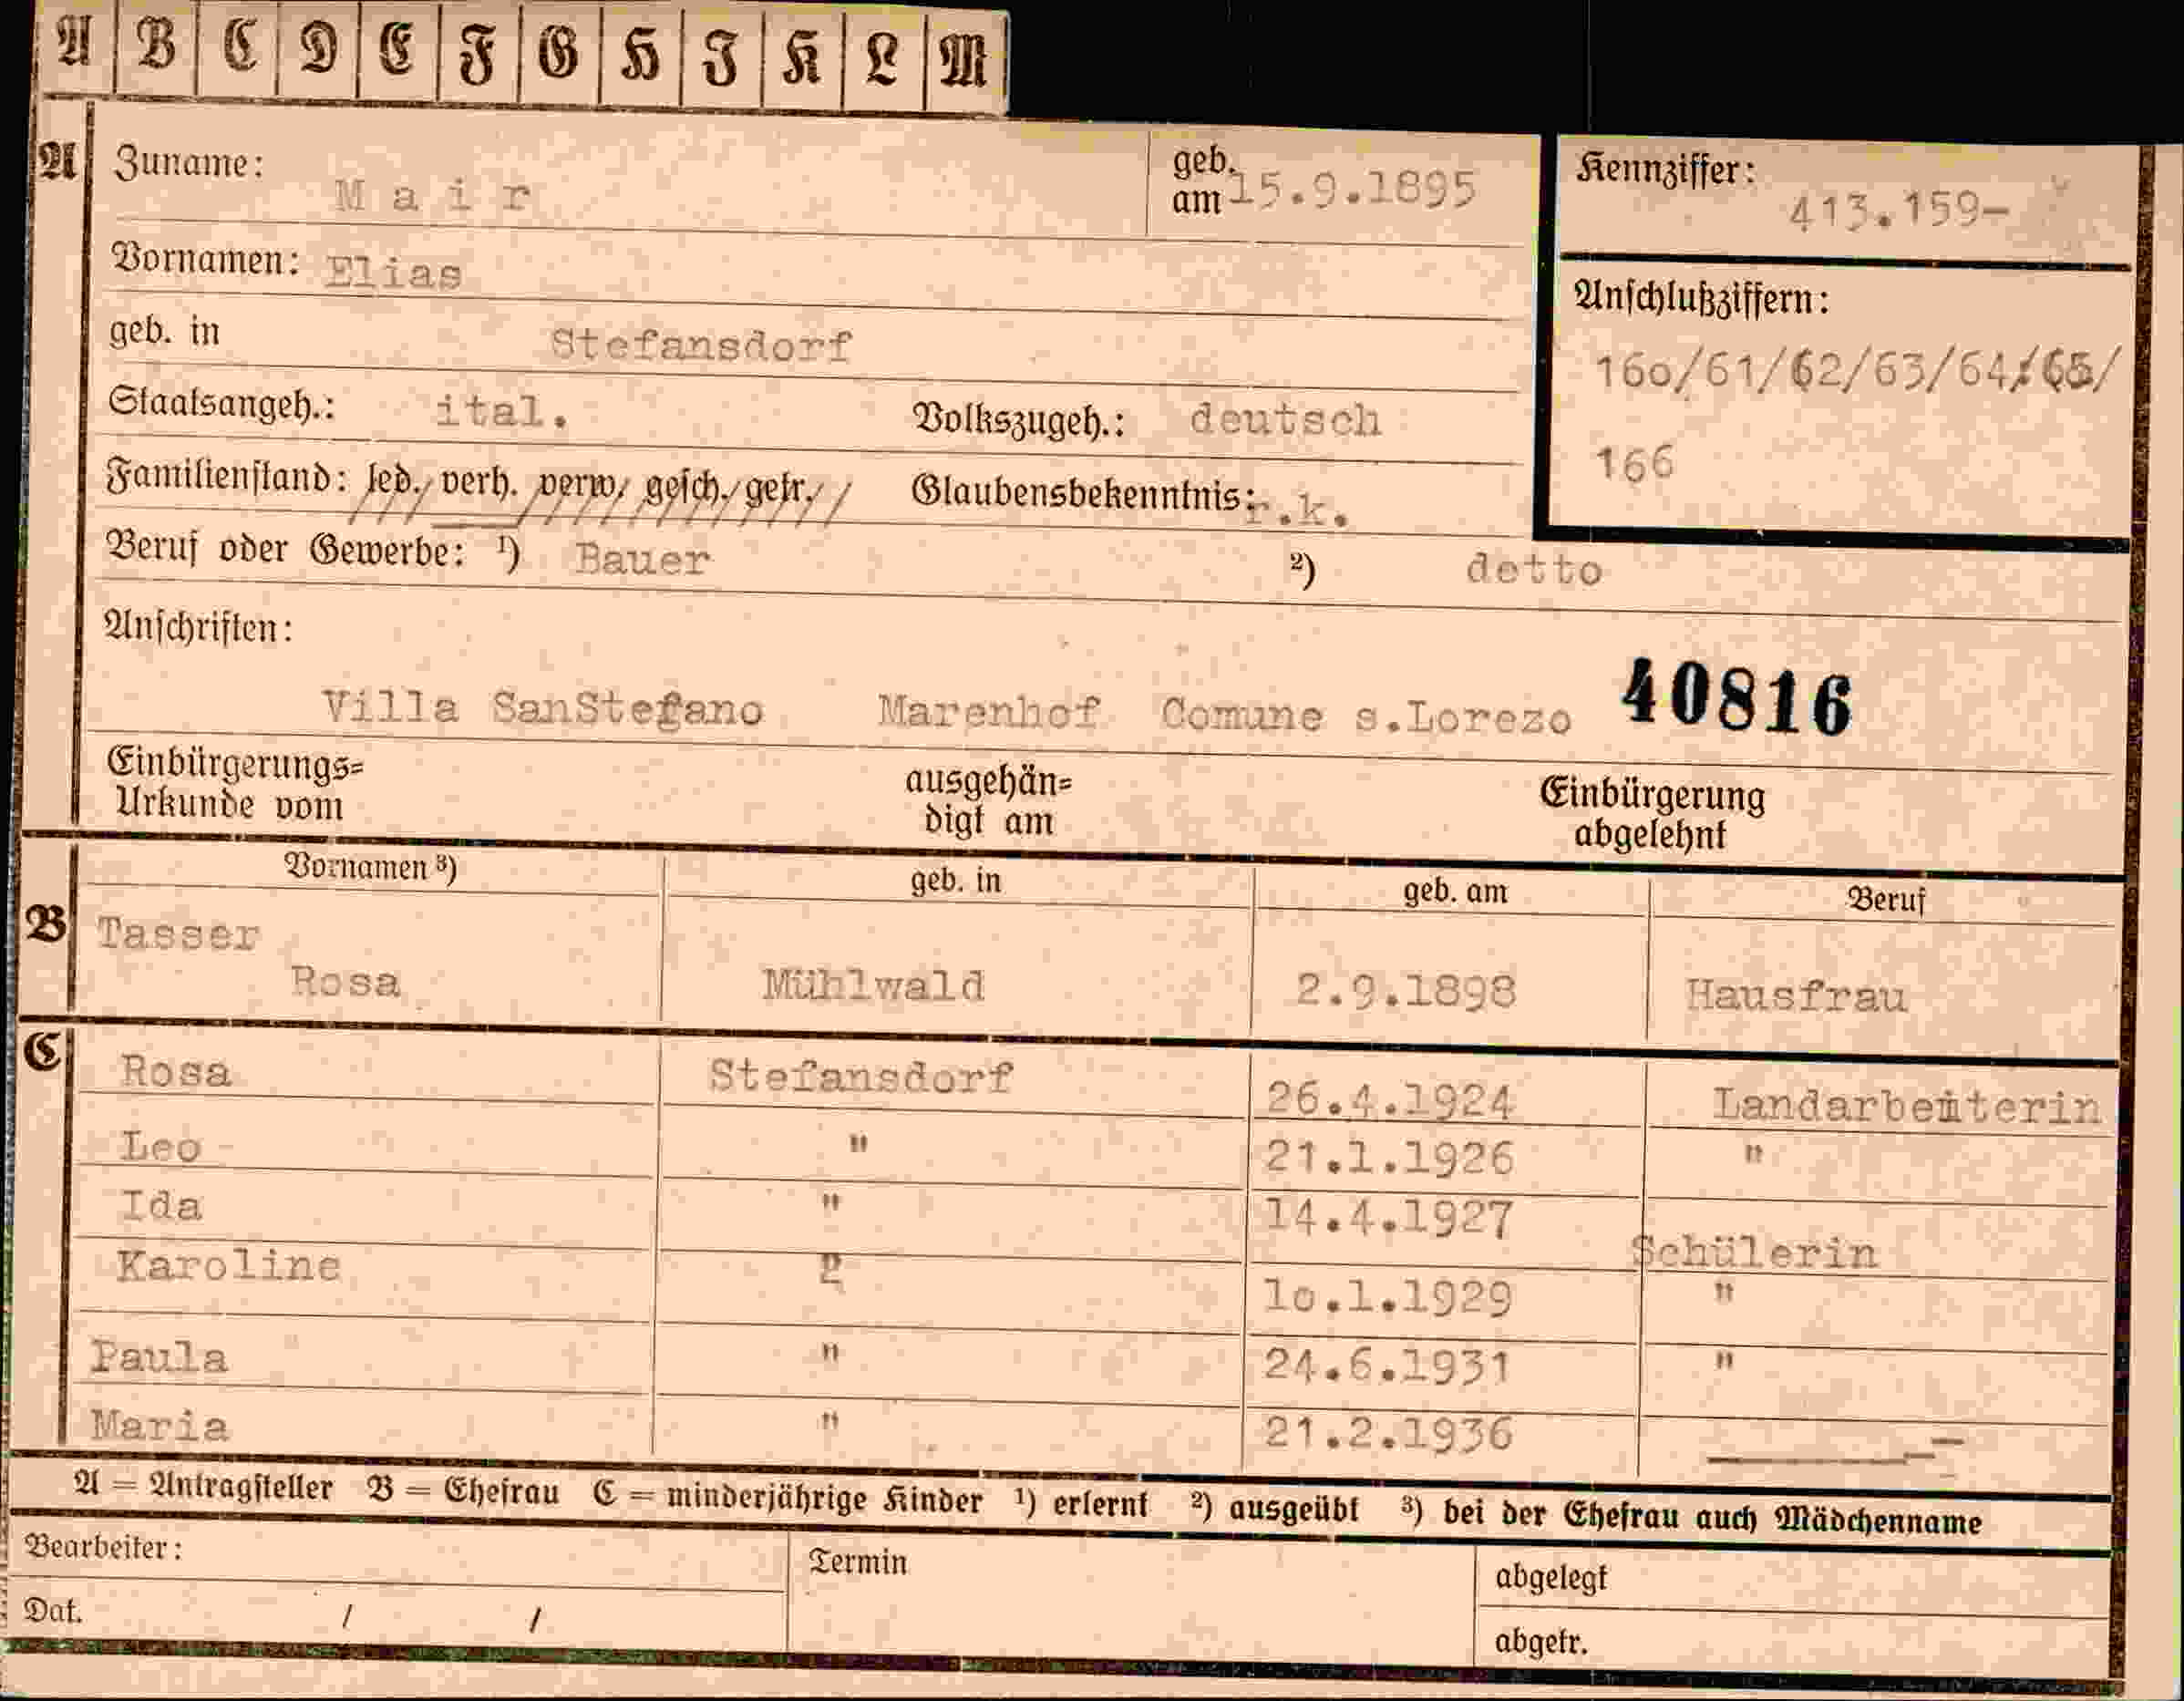 A B C D E F G H I K L M
A Zuname: Mair geb. am 15.9.1895 Kennziffer: 413.159-
Vornamen: Elias
Anschlußziffern:
geb. in Stefansdorf
160/61/62/63/64/65/
Staatsangeh.: ital. Volkszugeh.: deutsch
166
Familienstand: led./ verh. verw/ gesch./ getr./ / Glaubensbekenntnis: r.k.
Beruf oder Gewerbe: ¹) Bauer ²) detto
Anschriften:
Villa SanStefano Marenhof Comune s.Lorezo 40816
Einbürgerungs=
Urkunde vom
ausgehän=
digt am
Einbürgerung
abgelehnt
Vornamen ³) geb. in geb. am Beruf
B Tasser
Rosa Mühlwald 2.9.1898 Hausfrau
C Rosa Stefansdorf 26.4.1924 Landarbeiterin
Leo - " 21.1.1926 "
Ida " 14.4.1927 Schülerin
Karoline 2 10.1.1929 "
Paula " 24.6.1931 "
Maria " 21.2.1936 ----
A = Antragsteller B = Ehefrau C = minderjährige Kinder ¹) erlernt ²) ausgeübt ³) bei der Ehefrau auch Mädchenname
Bearbeiter: Termin abgelegt
Dat. / / abgetr.